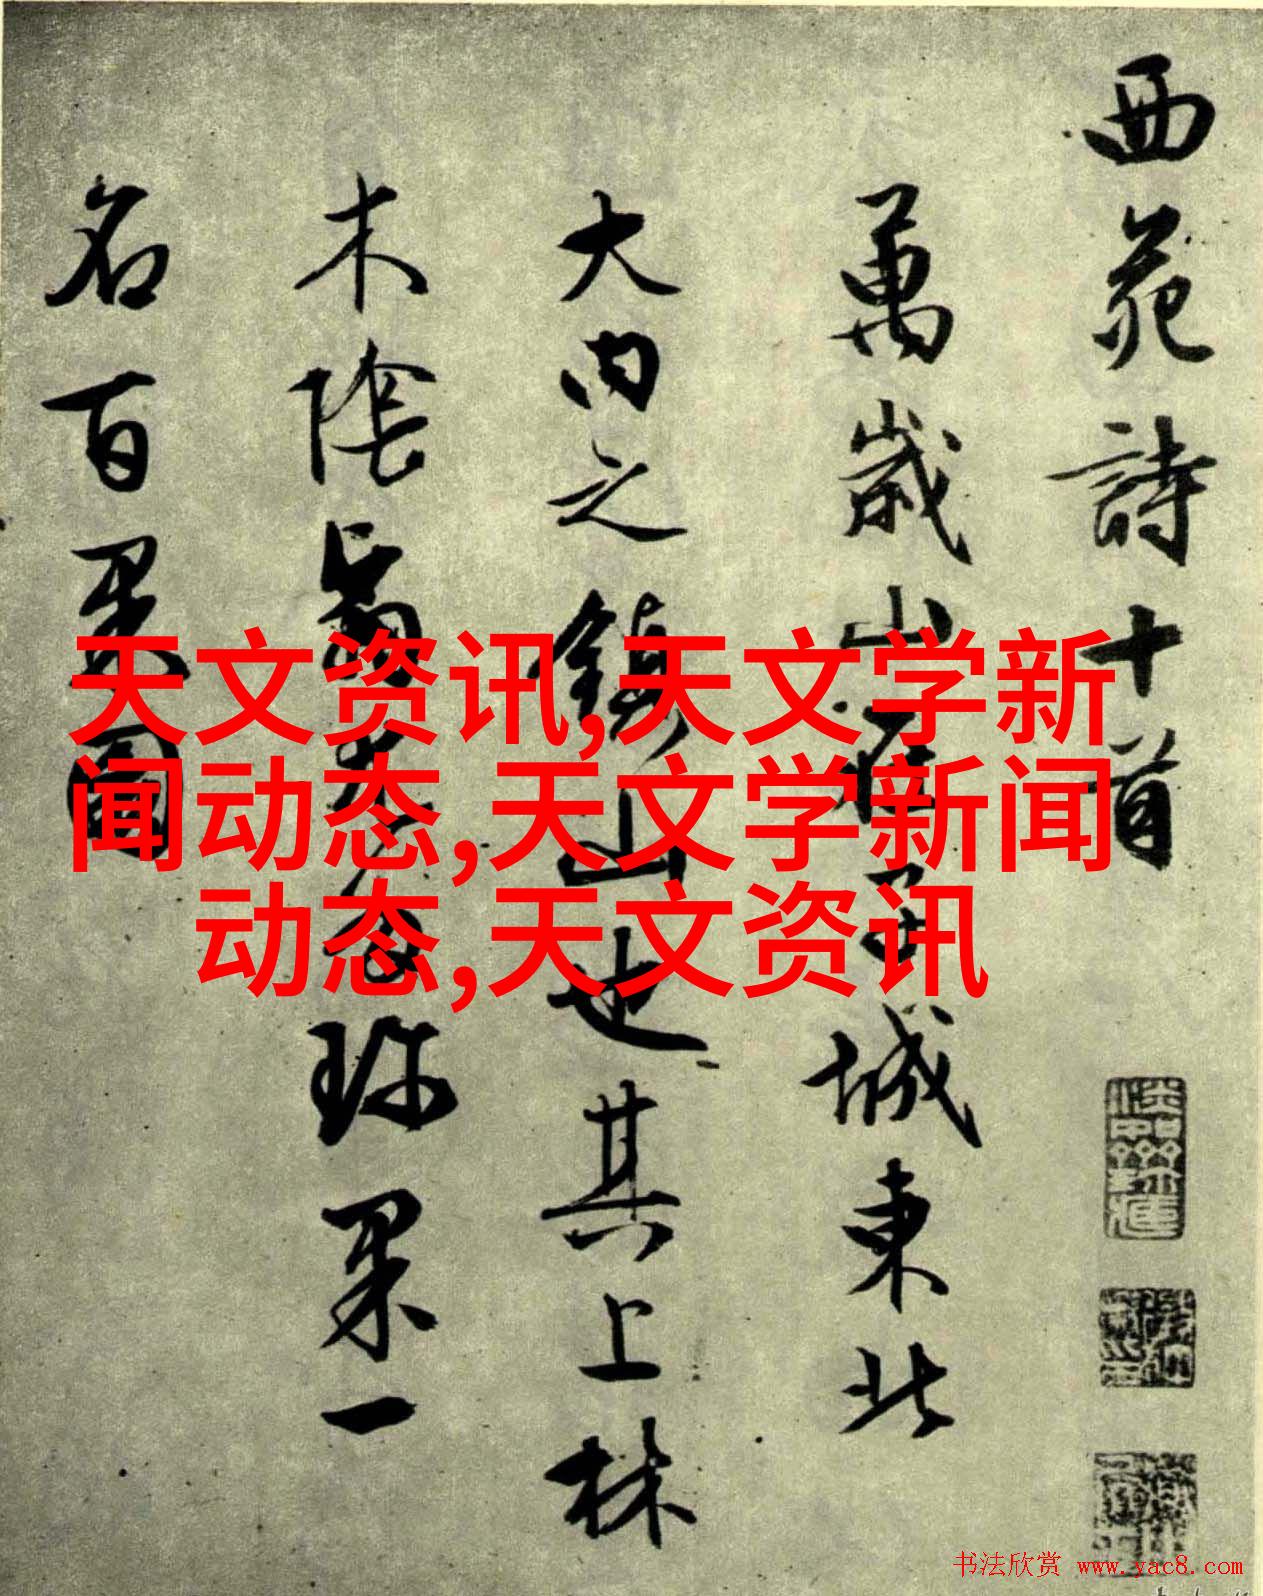 西苑詩十首
萬歲山在子城東北
大内之鎮山也其上林
木陰翳尤多珍果一
名百果園
天文资讯,天文学新
闻动态,天文学新闻
动态,天文资讯
书法欣赏 www.yac8.com